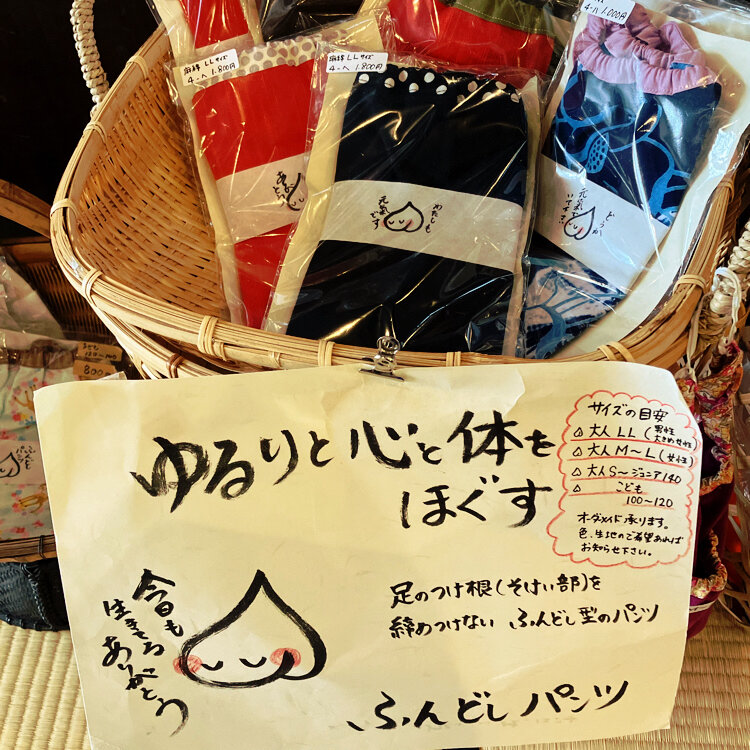 麻綿 LLサイズ
4-へ 1.800円
麻綿 LLサイズ
4-へ 1.800円
4-ハ 1,000円
わたしも
元気です
どうか
元気で
いてね
こども
120~140
800円
ゆるりと心と体を
ほぐす
サイズの目安
△大人 LL (男性 大きめ女性)
△大人 M~L (女性)
△大人 S~ジュニア140
△ こども
100~120
オーダーメイド承ります。
色、生地のご希望あれば
お知らせ下さい。
今日も
生きてる
ありがとう
足のつけ根(そけい部)を
締めつけない ふんどし型のパンツ
ふんどしパンツ